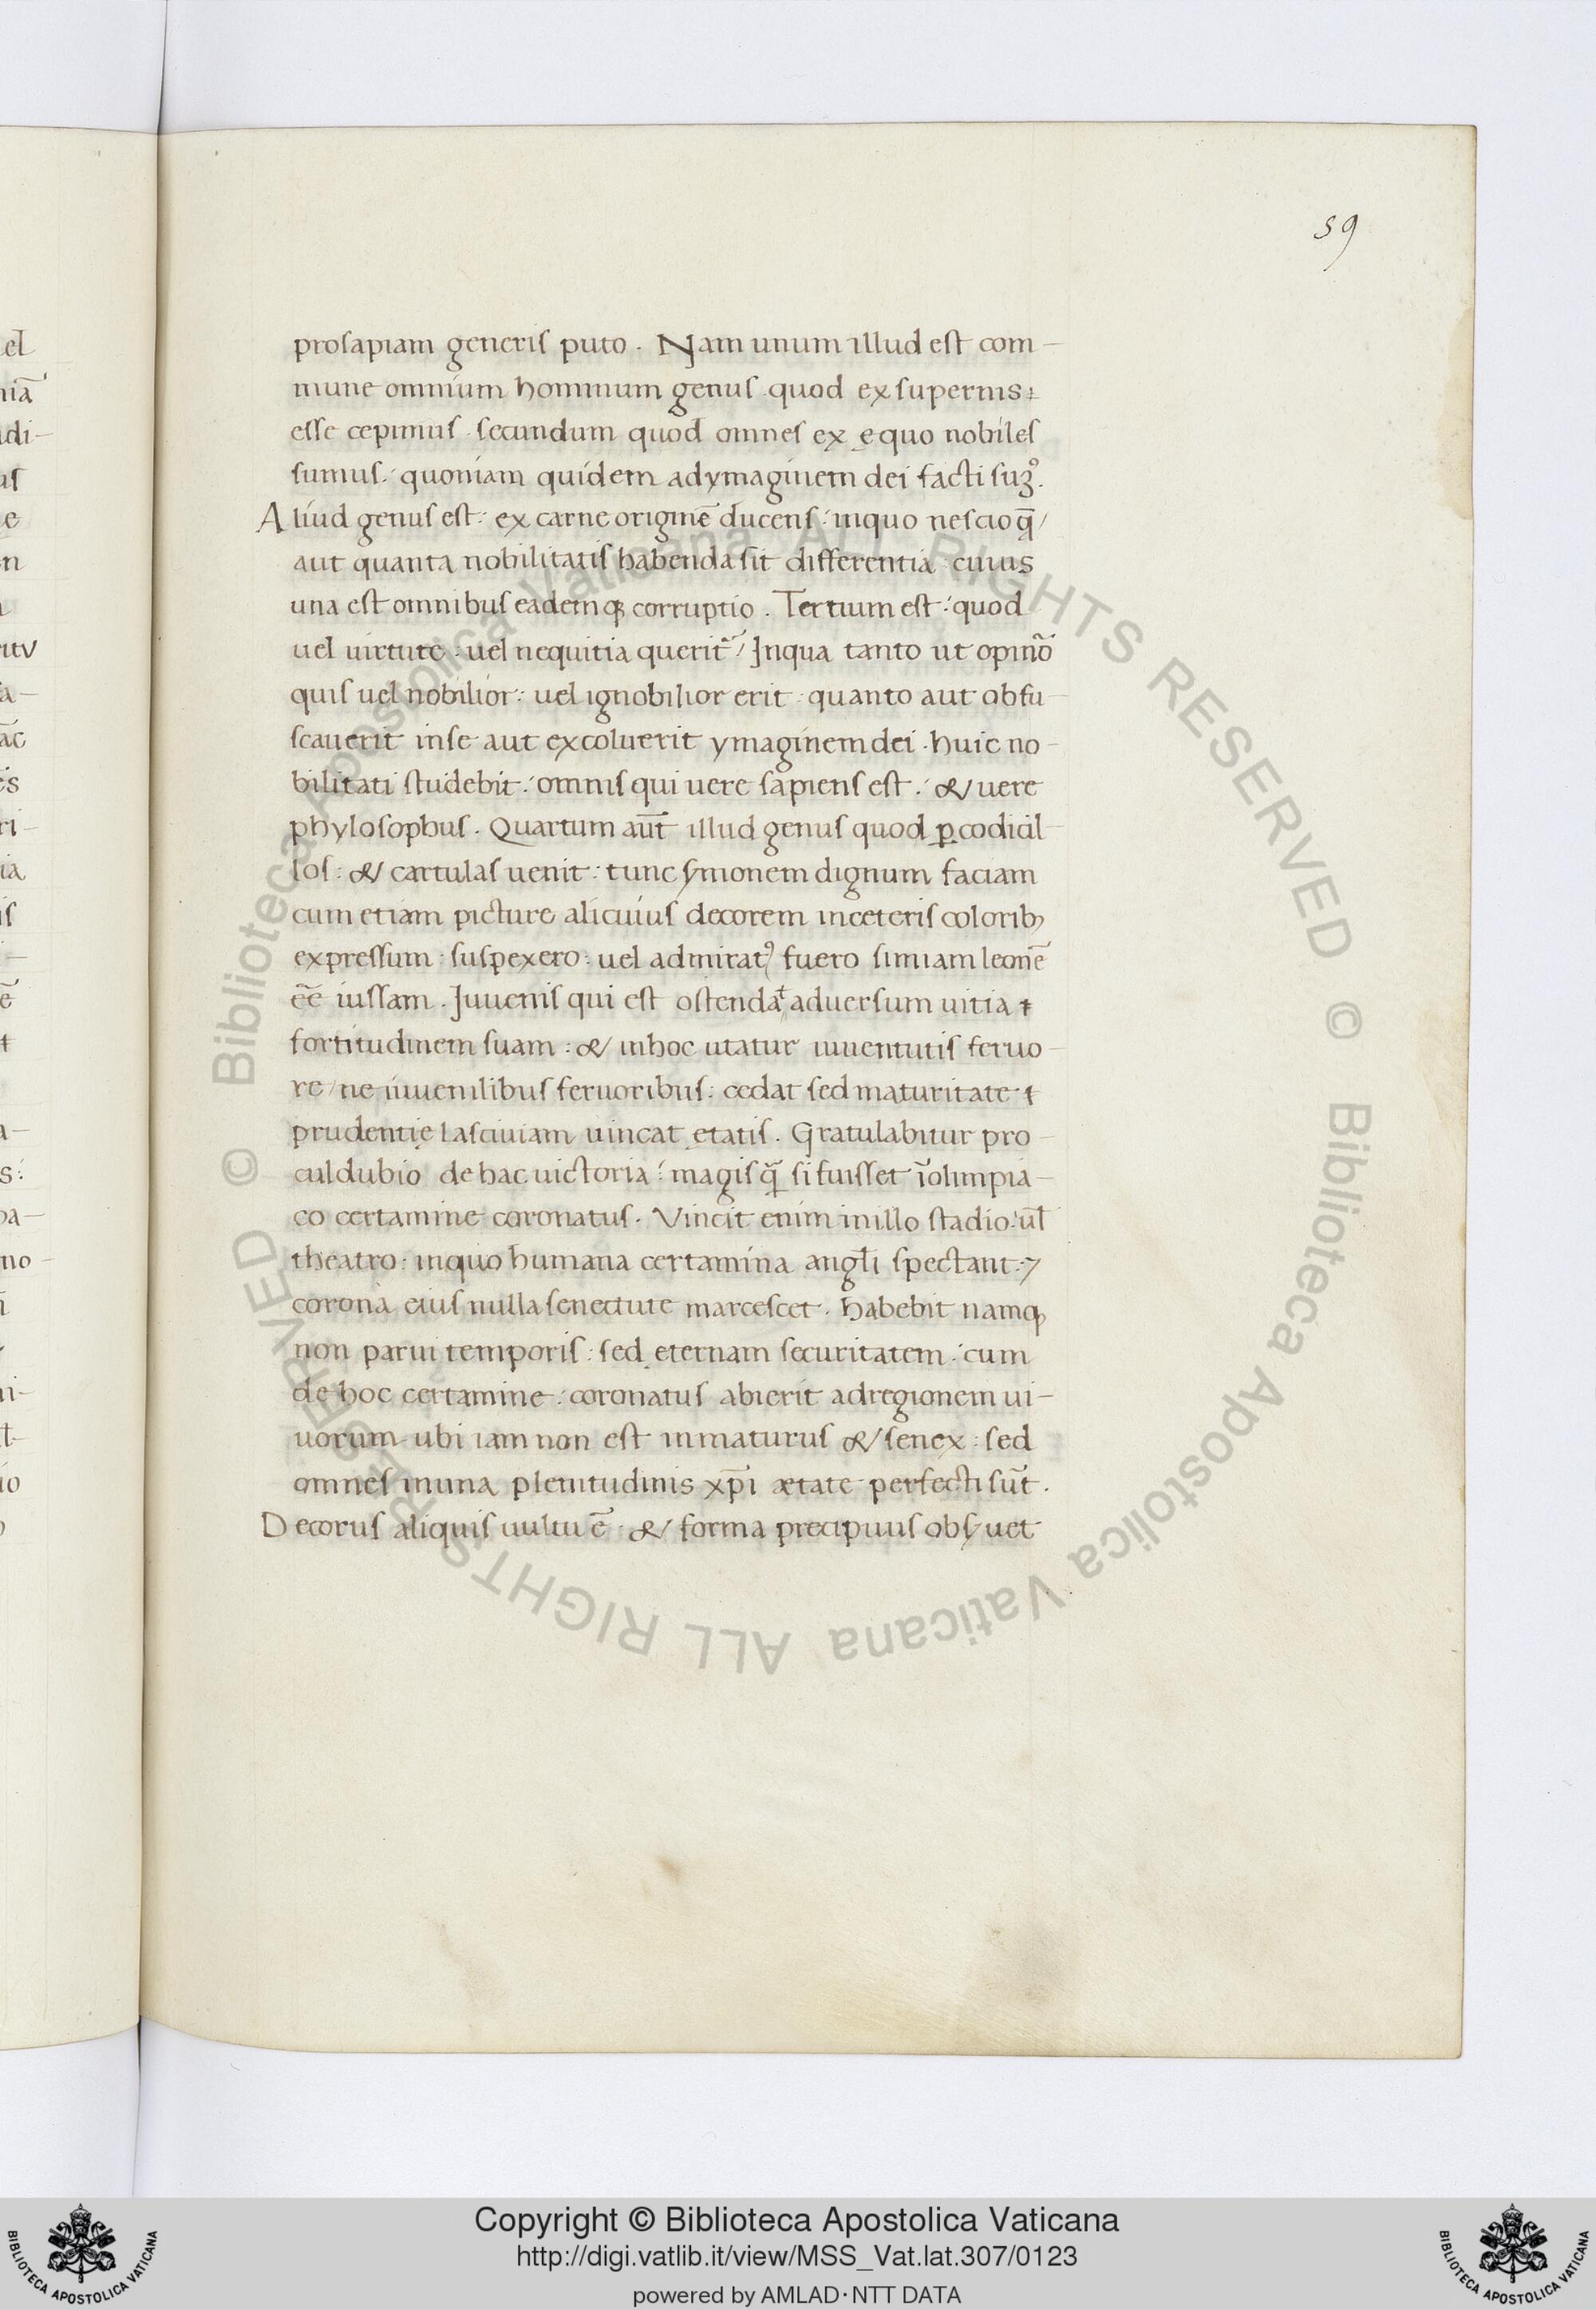 59
prosapiam generis puto. Nam unum illud est com-
mune omnium hominum genus quod ex supernis:
esse cepimus. secundum quod omnes ex ęquo nobiles
sumus: quoniam quidem ad ymaginem dei facti sumꝰ.
Aliud genus est: ex carne originē ducens: in quo nescio q̄/
aut quanta nobilitatis habenda sit differentia. cuius
una est omnibus eademqꝫ corruptio. Tertium est: quod
uel uirtute: uel nequitia querit᷑/ Inqua tanto ut opinōr
quis uel nobilior: uel ignobilior erit: quanto aut obfu-
scauerit inse aut excoluerit ymaginem dei. huic no-
bilitati studebit: omnis qui uere sapiens est: & uere
phylosophus. Quartum aūt illud genus quod ꝑ codicil-
los: & cartulas uenit: tunc symonem dignum faciam
cum etiam picture alicuius decorem in ceteris coloribꝫ
expressum: suspexero: uel admiratꝰ fuero simiam leonē
eē̄ iussam. Iuuenis qui est ostendat aduersum uitia
fortitudinem suam: & inhoc utatur iuuentutis feruo-
re/ ne iuuenilibus feruoribus: cedat sed maturitate
prudentię lasciuiam uincat ętatis. Gratulabitur pro-
culdubio de hac uictoria: magis q̄ si fuisset ī olimpia-
co certamine coronatus. Vincit enim in illo stadio: ul̄
theatro: inquo humana certamina angl̄i spectant: ⁊
corona eius nulla senectute marcescet. habebit namqꝫ
non parui temporis: sed ęternam securitatem: cum
de hoc certamine: coronatus abierit ad regionem ui-
uorum ubi iam non est inmaturus & senex: sed
omnes in una plenitudinis xp̄i ætate perfecti sūt.
Decorus aliquis uultu ē & forma precipuus obseruet
el
niā
adi-
us
e
n
itv
a-
āc
s
ri-
ia
is
ē
a-
s:
pa-
no-
ni-
io
© Biblioteca Apostolica Vaticana ALL RIGHTS RESERVED © Biblioteca Apostolica Vaticana ALL RIGHTS RESERVED
BIBLIOTECA APOSTOLICA VATICANA
Copyright © Biblioteca Apostolica Vaticana
http://digi.vatlib.it/view/MSS_Vat.lat.307/0123
powered by AMLAD·NTT DATA
BIBLIOTECA APOSTOLICA VATICANA